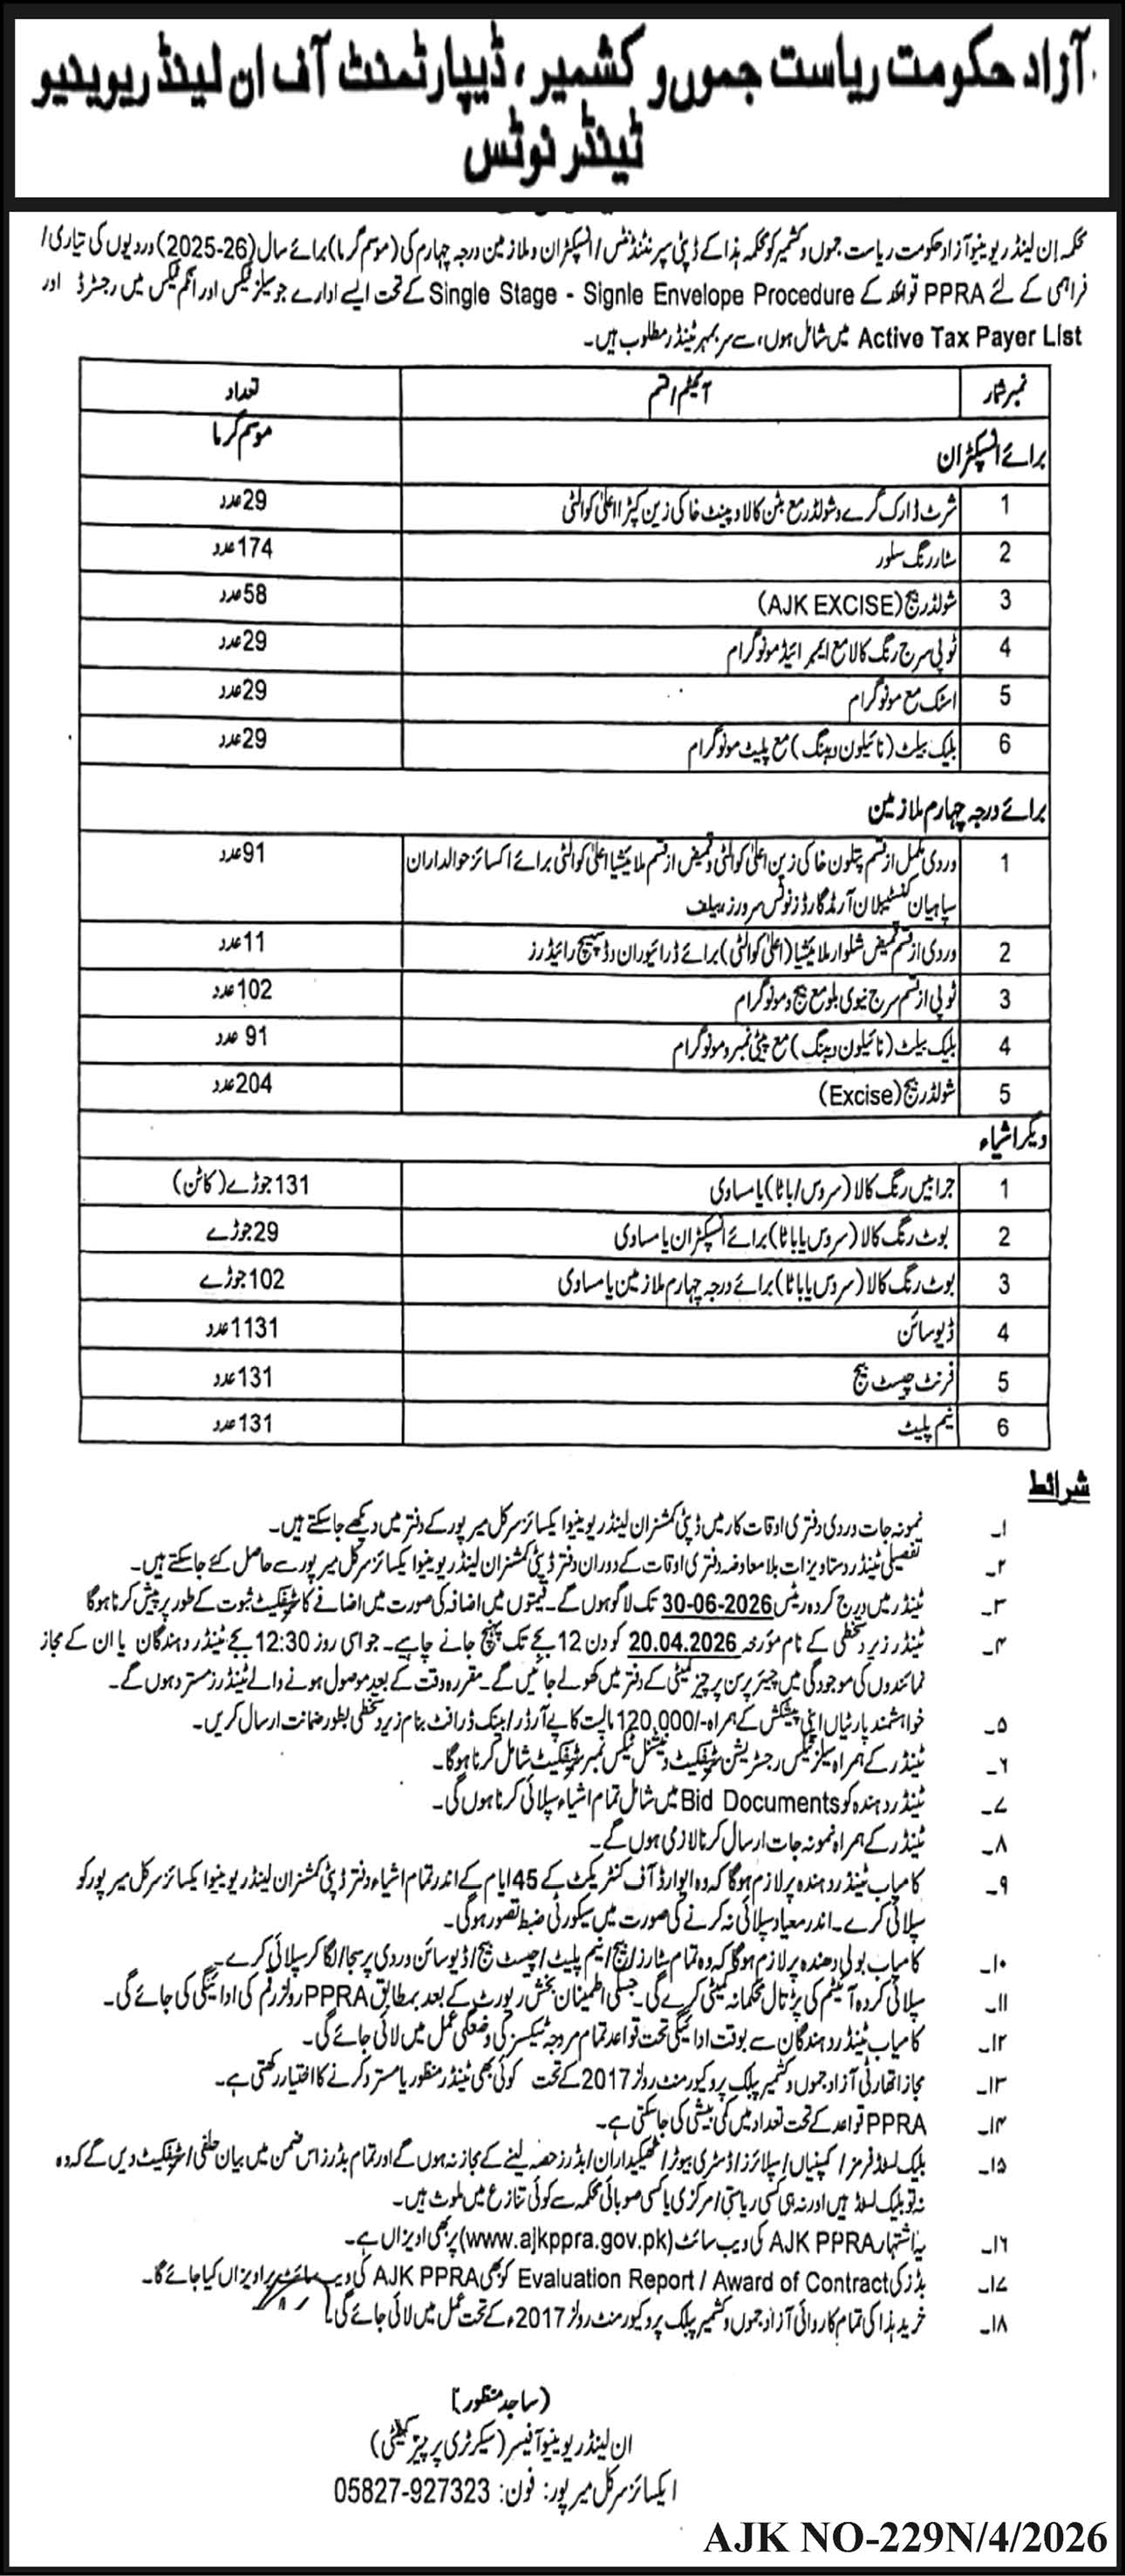 آزاد حکومت ریاست جموں و کشمیر، ڈیپارٹمنٹ آف ان لینڈ ریوینیو
ٹینڈر نوٹس
محکمہ ان لینڈ ریوینیو آزاد حکومت ریاست جموں و کشمیر کو محکمہ ہذا کے ڈپٹی سپرنٹنڈنٹس / انسپکٹران و ملازمین درجہ چہارم کی (موسم گرما) برائے سال (2025-26) وردیوں کی تیاری /
فراہمی کے لئے PPRA قواعد کے Single Stage - Signle Envelope Procedure کے تحت ایسے ادارے جو سیلز ٹیکس اور انکم ٹیکس میں رجسٹرڈ اور
Active Tax Payer List میں شامل ہوں، سے سربمہر ٹینڈر مطلوب ہیں۔
نمبر شمار آئیٹم / قسم تعداد
برائے انسپکٹران موسم گرما
1 شرٹ ڈارک گرے و شولڈر مع بٹن کالا و پینٹ خاکی زین کپڑا اعلیٰ کوالٹی 29 عدد
2 سٹار رنگ سلور 174 عدد
3 شولڈر بیج (AJK EXCISE) 58 عدد
4 ٹوپی سرج رنگ کالا مع ایمبرائیڈ مونوگرام 29 عدد
5 اسٹک مع مونوگرام 29 عدد
6 بلیک بیلٹ (نائیلون ویبنگ) مع پلیٹ مونوگرام 29 عدد
برائے درجہ چہارم ملازمین
1 وردی مکمل از قسم پتلون خاکی زین اعلیٰ کوالٹی و قمیض از قسم ملائیشیا اعلیٰ کوالٹی برائے اکسائز حوالداران 91 عدد
سپاہیان کنسٹیبلان آرمڈ گارڈز نوٹس سرورز، بیلف
2 وردی از قسم قمیض شلوار ملائیشیا (اعلیٰ کوالٹی) برائے ڈرائیوران و ڈسپیچ رائیڈرز 11 عدد
3 ٹوپی از قسم سرج نیوی بلو مع بیج و مونوگرام 102 عدد
4 بلیک بیلٹ (نائیلون ویبنگ) مع پیٹی نمبر و مونوگرام 91 عدد
5 شولڈر بیج (Excise) 204 عدد
دیگر اشیاء
1 جرابیں رنگ کالا (سروس / باٹا) یا مساوی 131 جوڑے (کاٹن)
2 بوٹ رنگ کالا (سروس یا باٹا) برائے انسپکٹران یا مساوی 29 جوڑے
3 بوٹ رنگ کالا (سروس یا باٹا) برائے درجہ چہارم ملازمین یا مساوی 102 جوڑے
4 ڈیوسائن 1131 عدد
5 فرنٹ چیسٹ بیج 131 عدد
6 نیم پلیٹ 131 عدد
شرائط
۱۔ نمونہ جات وردی دفتری اوقات کار میں ڈپٹی کمشنر ان لینڈ ریوینیو ایکسائز سرکل میرپور کے دفتر میں دیکھے جا سکتے ہیں۔
۲۔ تفصیلی ٹینڈر دستاویزات بلا معاوضہ دفتری اوقات کے دوران دفتر ڈپٹی کمشنر ان لینڈ ریوینیو ایکسائز سرکل میرپور سے حاصل کئے جا سکتے ہیں۔
۳۔ ٹینڈر میں درج کردہ ریٹس 30-06-2026 تک لاگو ہوں گے۔ قیمتوں میں اضافہ کی صورت میں اضافے کا سرٹیفکیٹ ثبوت کے طور پر پیش کرنا ہوگا
۴۔ ٹینڈر زیر دستخطی کے نام مؤرخہ 20.04.2026 کو دن 12 بجے تک پہنچ جانے چاہیے۔ جو اسی روز 12:30 بجے ٹینڈر دہندگان یا ان کے مجاز
نمائندوں کی موجودگی میں چیئرپرسن پرچیز کمیٹی کے دفتر میں کھولے جائیں گے۔ مقررہ وقت کے بعد موصول ہونے والے ٹینڈرز مسترد ہوں گے۔
۵۔ خواہشمند پارٹیاں اپنی پیشکش کے ہمراہ -/120,000 مالیت کا پے آرڈر / بینک ڈرافٹ بنام زیر دستخطی بطور ضمانت ارسال کریں۔
۶۔ ٹینڈر کے ہمراہ سیلز ٹیکس رجسٹریشن سرٹیفکیٹ و نیشنل ٹیکس نمبر سرٹیفکیٹ شامل کرنا ہوگا۔
۷۔ ٹینڈر دہندہ کو Bid Documents میں شامل تمام اشیاء سپلائی کرنا ہوں گی۔
۸۔ ٹینڈر کے ہمراہ نمونہ جات ارسال کرنا لازمی ہوں گے۔
۹۔ کامیاب ٹینڈر دہندہ پر لازم ہوگا کہ وہ ایوارڈ آف کنٹریکٹ کے 45 ایام کے اندر تمام اشیاء دفتر ڈپٹی کمشنر ان لینڈ ریوینیو ایکسائز سرکل میرپور کو
سپلائی کرے۔ اندر معیاد سپلائی نہ کرنے کی صورت میں سیکورٹی ضبط تصور ہوگی۔
۱۰۔ کامیاب بولی دھندہ پر لازم ہوگا کہ وہ تمام سٹارز / بیج / نیم پلیٹ / چیسٹ بیج / ڈیوسائن وردی پر سجا / لگا کر سپلائی کرے۔
۱۱۔ سپلائی کردہ آئیٹم کی پڑتال محکمانہ کمیٹی کرے گی۔ جسکی اطمینان بخش رپورٹ کے بعد بمطابق PPRA رولز رقم کی ادائیگی کی جائے گی۔
۱۲۔ کامیاب ٹینڈر دہندگان سے بوقت ادائیگی تحت قواعد تمام مروجہ ٹیکسز کی وضعگی عمل میں لائی جائے گی۔
۱۳۔ مجاز اتھارٹی آزاد جموں و کشمیر پبلک پروکیورمنٹ رولز 2017 کے تحت کوئی بھی ٹینڈر منظور یا مسترد کرنے کا اختیار رکھتی ہے۔
۱۴۔ PPRA قواعد کے تحت تعداد میں کمی بیشی کی جا سکتی ہے۔
۱۵۔ بلیک لسٹڈ فرمز / کمپنیاں / سپلائرز / ڈسٹری بیوٹر / ٹھیکیداران / بڈرز حصہ لینے کے مجاز نہ ہوں گے اور تمام بڈرز اس ضمن میں بیان حلفی / سرٹیفکیٹ دیں گے کہ وہ
نہ تو بلیک لسٹڈ ہیں اور نہ ہی کسی ریاستی / مرکزی یا کسی صوبائی محکمہ سے کوئی تنازع میں ملوث ہیں۔
۱۶۔ یہ اشتہار AJK PPRA کی ویب سائٹ (www.ajkppra.gov.pk) پر بھی اویزاں ہے۔
۱۷۔ بڈز کی Evaluation Report / Award of Contract کو بھی AJK PPRA کی ویب سائٹ پر اویزاں کیا جائے گا۔
۱۸۔ خرید ہذا کی تمام کاروائی آزاد جموں و کشمیر پبلک پروکیورمنٹ رولز 2017ء کے تحت عمل میں لائی جائے گی۔
(ساجد منظور)
ان لینڈ ریوینیو آفیسر (سیکرٹری پرچیز کمیٹی)
ایکسائز سرکل میرپور: فون: 05827-927323
AJK NO-229N/4/2026